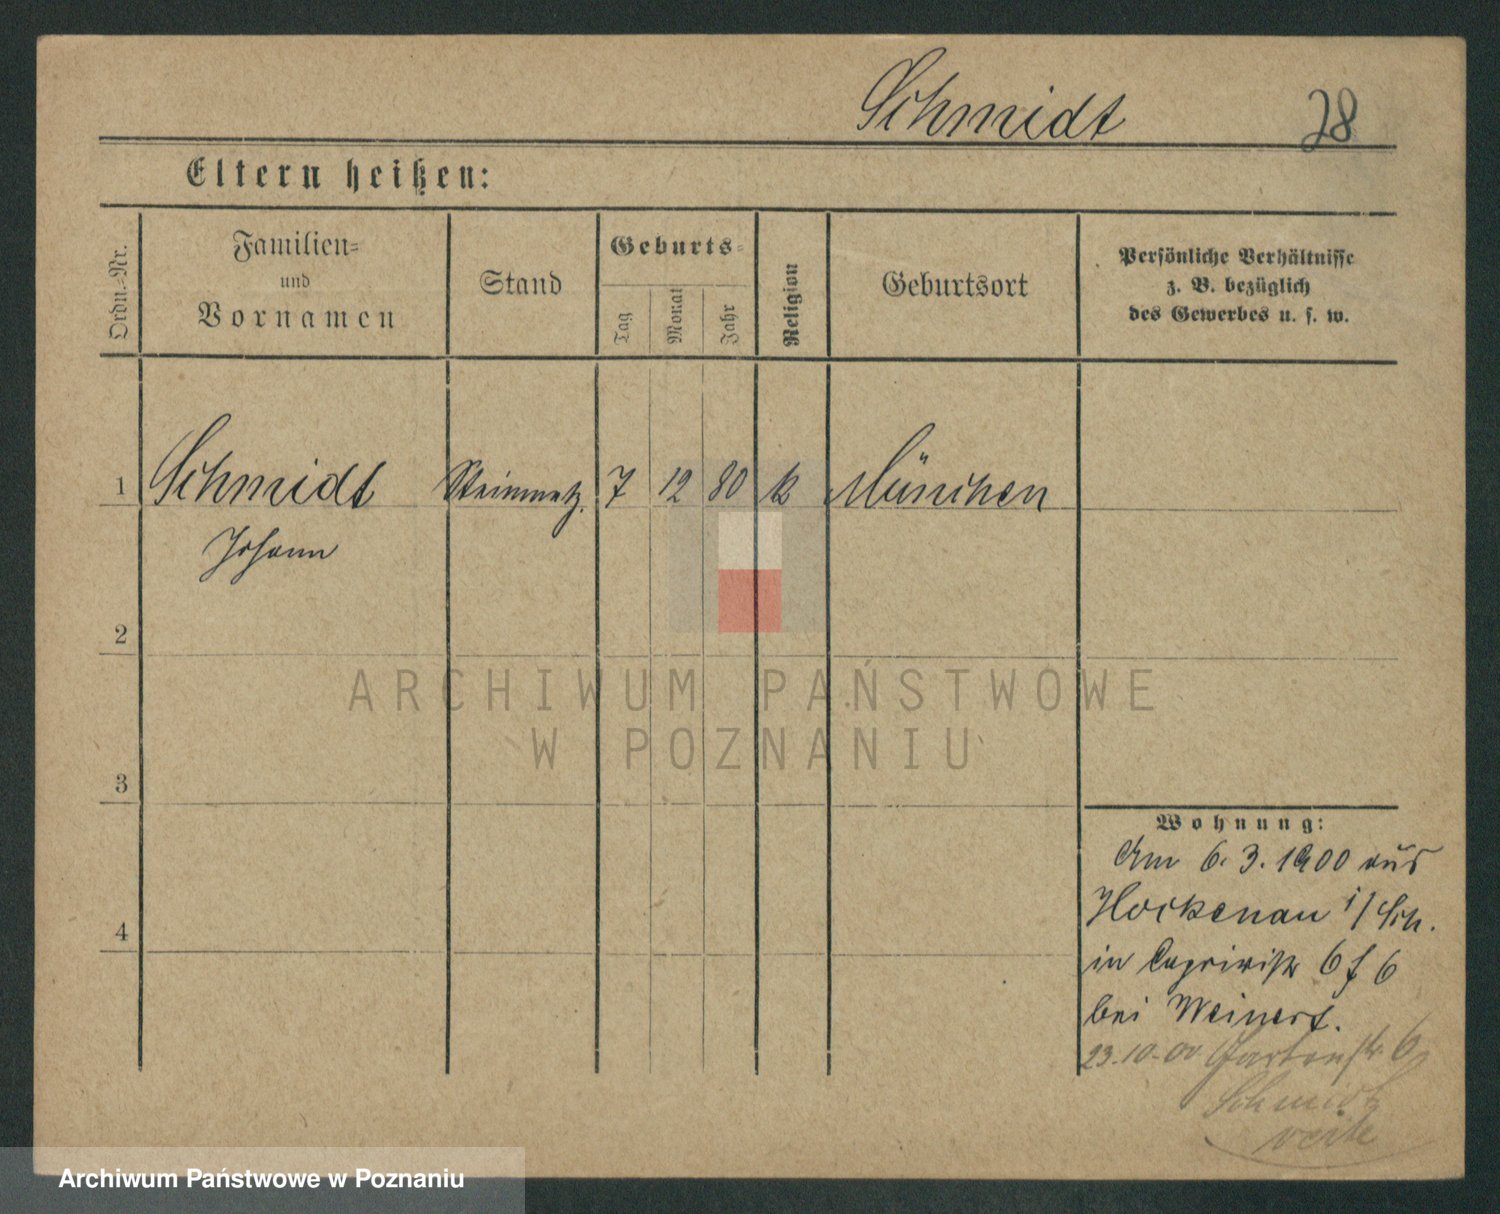 Schmidt 28
Eltern heißen:
Ordn.-Nr.
Familien-
und
Vornamen
Stand
Geburts-
Tag
Monat
Jahr
Religion
Geburtsort
Persönliche Verhältnisse
z. B. bezüglich
des Gewerbes u. s. w.
1 Schmidt Steinmetz. 7 12 80 k München
Johann
2
ARCHIWUM PAŃSTWOWE
W POZNANIU
3
4
Wohnung:
Am 6. 3. 1900 aus
Hockenau i/Sch.
in Caprivistr 6 f 6
bei Weinert.
23.10.00 Gartenstr. 6
Schmidt
Archiwum Państwowe w Poznaniu